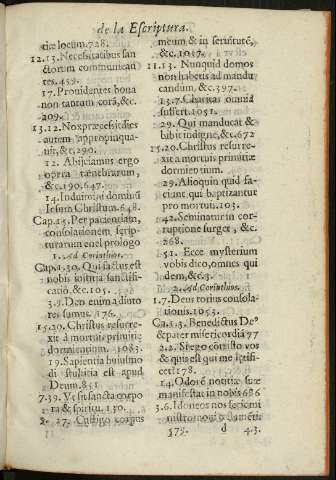 de la Escriptura.
tiæ locum. 728.
12.13. Necessitatibus san
ctorum communican
tes. 459.
17. Prouidentes bona
non tantum corã, &c.
209.
13.12. Nox præcessit dies
autem appropinqua-
uit, &c. 290.
12. Abijciamus ergo
opera tenebrarum,
&c. 190. 647.
14. Induimini dominũ
Iesum Christum. 648.
Cap. 15. Per patientiam,
consolationem scrip-
turarum en el prologo
1. Ad Corinthios.
Cap. 1.30. Qui factus est
nobis iustitia sanctifi-
catio &c. 105.
3.9. Dei enim adiuto
res sumus. 176.
15.20. Christus resurre-
xit à mortuis primitię
dormientium. 1083.
19. Sapientia huius mũdi
stultitia est apud
Deum. 851
7.39. Vt sit sancta corpo
ra & spiritu. 130.
27. Castigo corpus
meum & in seruitutẽ,
&c. 1057.
11.13. Nunquid domos
non habetis ad mandu
candum, &c. 397.
13.7. Charitas omnia
suffert. 1051.
29. Qui manducat &
bibit indignè, &c. 672
15.20. Christus resurre-
xit à mortuis primitiæ
dormientium.
29. Alioquin quid fa-
cient qui baptizantur
pro mortuis. 103.
42. Seminatur in cor-
ruptione surget, &c.
268.
51. Ecce mysterium
vobis dico, omnes qui
dem, &c. 3.
2. Ad Corinthios.
1.7. Deus totius consola-
tionis. 1053.
Ca. 1.3. Benedictus De⁹
& pater misericordia 77
2.2. Si ego cõtristo vos
& quis est qui me lętifi-
cet! 178.
14. Odorẽ notitiæ suæ
manifestat in nobis 686
3.6. Idoneos nos fecit mi
nistros noui testamẽti.
179. d 4.3.